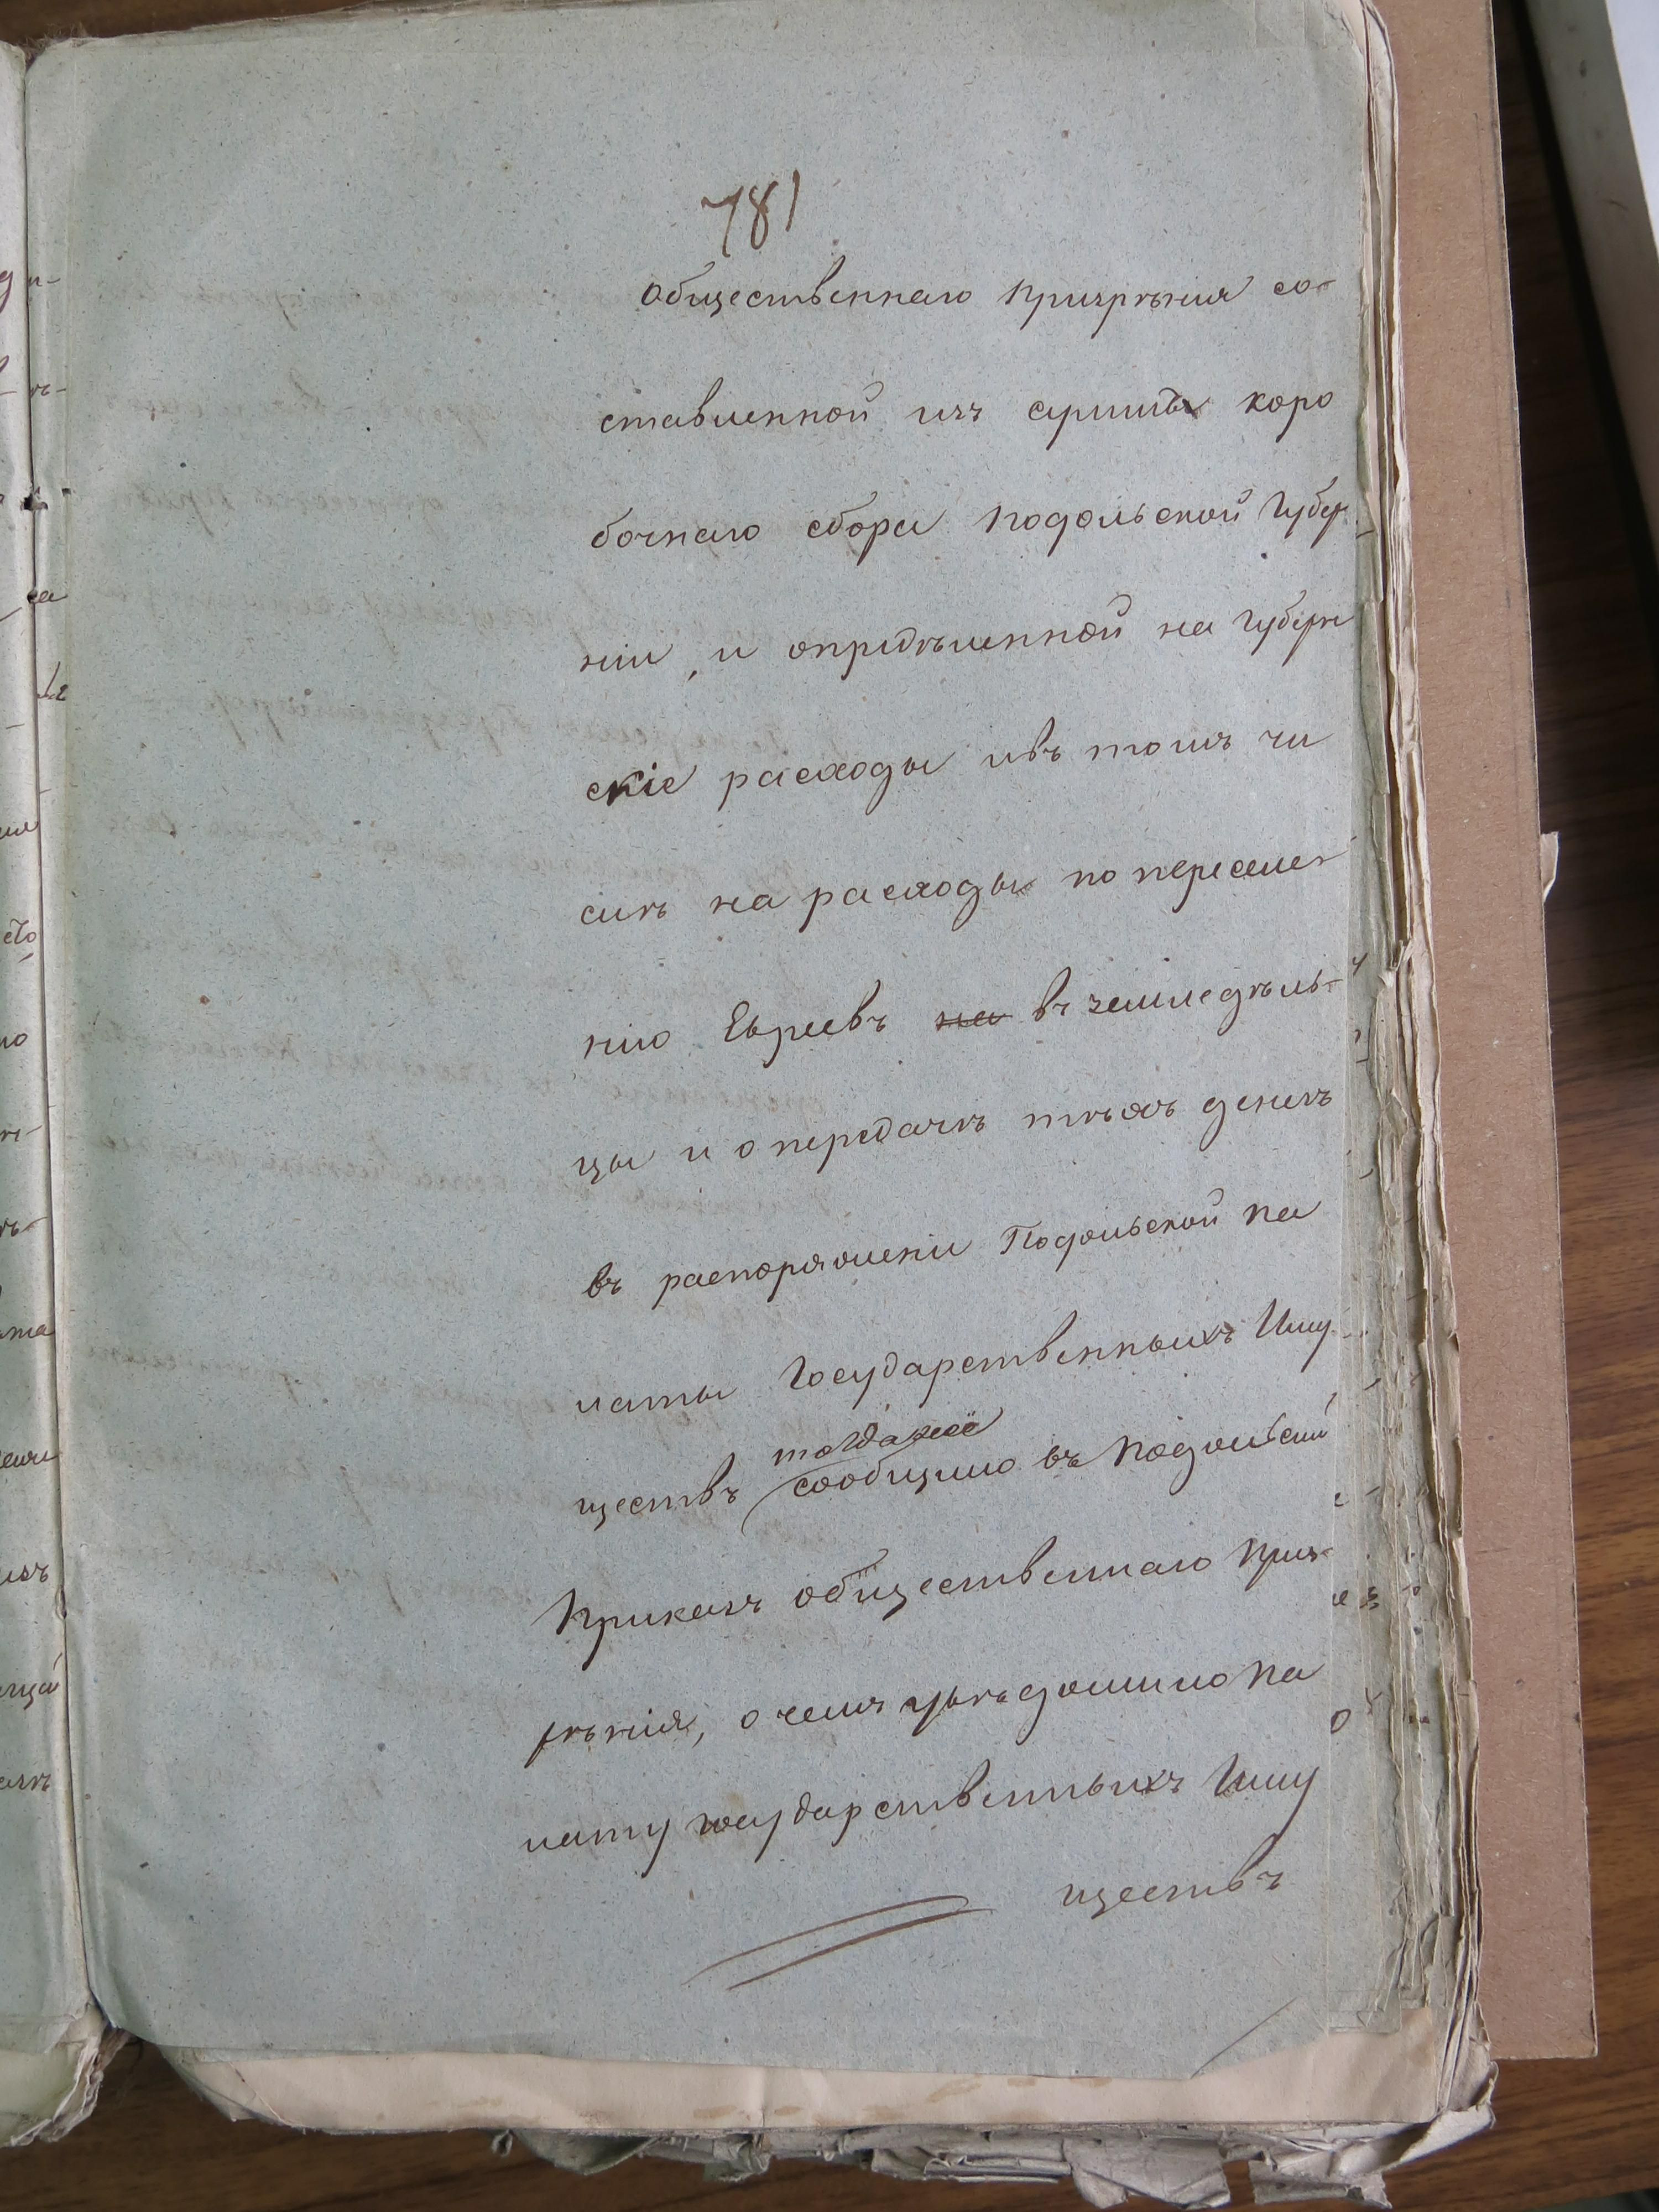 781
Общественнаго Призрѣнія со-
ставленной изъ суммы коро
бочнаго сбора Подольской Губер
ніи, и опредѣленной на Губерн
скіе расходы ивъ томъ чи
слѣ на расходы по переселе-
нію Евреевъ на въ земледѣль-
цы и о передачѣ тѣхъ денегъ
въ распоряженіи Подольской Па
латы Государственныхъ Иму
тогдаже
ществъ сообщило въ Подольскій
Приказъ общественнаго Приз-
рѣнія, о чемъ увѣдомило Па
лату государственныхъ Иму
ществъ